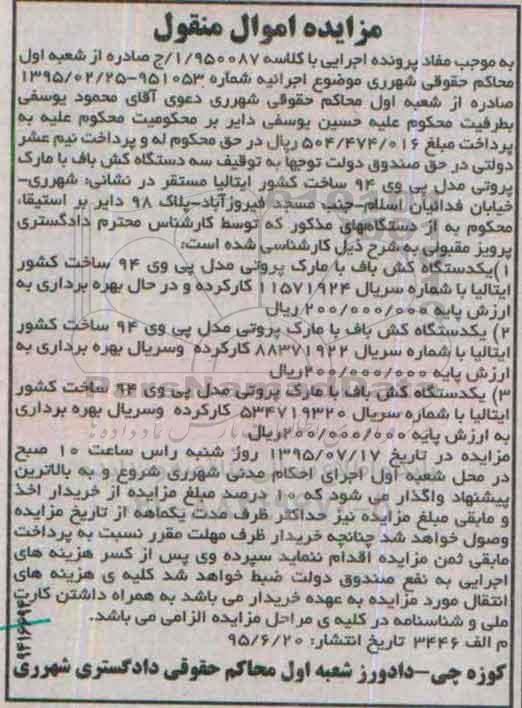 مزایده اموال منقول
به موجب مفاد پرونده اجرایی با کلاسه ۱/۹۵۰۰۸۷/ج صادره از شعبه اول
محاکم حقوقی شهرری موضوع اجرائیه شماره ۹۵۱۰۵۳-۱۳۹۵/۰۲/۲۵
صادره از شعبه اول محاکم حقوقی شهرری دعوی آقای محمود یوسفی
بطرفیت محکوم علیه حسین یوسفی دایر بر محکومیت محکوم علیه به
پرداخت مبلغ ۵۰۴/۴۷۴/۰۱۶ ریال در حق محکوم له و پرداخت نیم عشر
دولتی در حق صندوق دولت توجها به توقیف سه دستگاه کش باف با مارک
پروتی مدل پی وی ۹۴ ساخت کشور ایتالیا مستقر در نشانی: شهرری-
خیابان فدائیان اسلام-جنب مسجد فیروزآباد-پلاک ۹۸ دایر بر استیفاء
محکوم به از دستگاههای مذکور که توسط کارشناس محترم دادگستری
پرویز مقبولی به شرح ذیل کارشناسی شده است:
۱)یکدستگاه کش باف با مارک پروتی مدل پی وی ۹۴ ساخت کشور
ایتالیا با شماره سریال ۱۱۵۷۱۹۲۴ کارکرده و در حال بهره برداری به
ارزش پایه ۲۰۰/۰۰۰/۰۰۰ ریال
۲) یکدستگاه کش باف با مارک پروتی مدل پی وی ۹۴ ساخت کشور
ایتالیا با شماره سریال ۸۸۳۷۱۹۲۲ کارکرده وسریال بهره برداری به
ارزش پایه ۲۰۰/۰۰۰/۰۰۰ریال
۳) یکدستگاه کش باف با مارک پروتی مدل پی وی ۹۴ ساخت کشور
ایتالیا با شماره سریال ۵۳۴۷۱۹۳۲۰ کارکرده وسریال بهره برداری
به ارزش پایه ۲۰۰/۰۰۰/۰۰۰ریال
مزایده در تاریخ ۱۳۹۵/۰۷/۱۷ روز شنبه راس ساعت ۱۰ صبح
در محل شعبه اول اجرای احکام مدنی شهرری شروع و به بالاترین
پیشنهاد واگذار می شود که ۱۰ درصد مبلغ مزایده از خریدار اخذ
و مابقی مبلغ مزایده نیز حداکثر ظرف مدت یکماهه از تاریخ مزایده
وصول خواهد شد چنانچه خریدار ظرف مهلت مقرر نسبت به پرداخت
مابقی ثمن مزایده اقدام ننماید سپرده وی پس از کسر هزینه های
اجرایی به نفع صندوق دولت ضبط خواهد شد کلیه ی هزینه های
انتقال مورد مزایده به عهده خریدار می باشد به همراه داشتن کارت
ملی و شناسنامه در کلیه ی مراحل مزایده الزامی می باشد.
م الف ۳۴۴۶ تاریخ انتشار: ۹۵/۶/۲۰
کوزه چی-دادورز شعبه اول محاکم حقوقی دادگستری شهرری
ParsNamadData